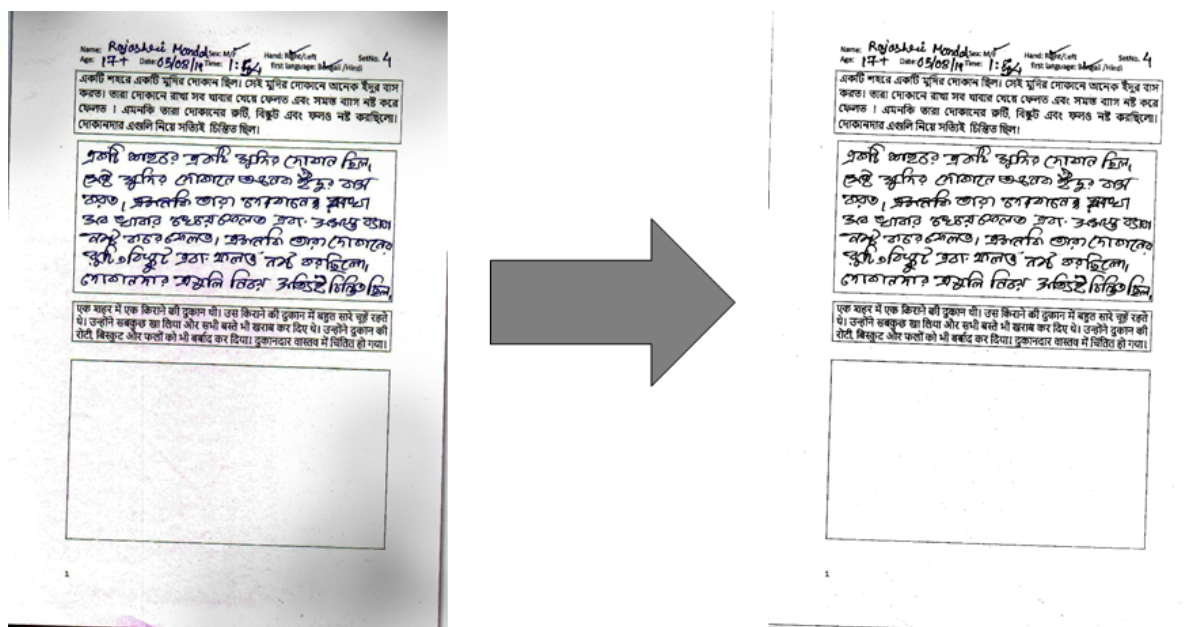 Name: Rajashri Mondal Sex: M/F Hand: Right/Left SetNo. 4
Age: 17+ Date: 05/08/19 Time: first language: Bengali /Hindi
একটি শহরে একটি মুদির দোকান ছিল। সেই মুদির দোকানে অনেক ইঁদুর বাস
করত। তারা দোকানে রাখা সব খাবার খেয়ে ফেলত এবং সমস্ত ব্যাগ নষ্ট করে
ফেলত । এমনকি তারা দোকানের রুটি, বিস্কুট এবং ফলও নষ্ট করছিলো।
দোকানদার এগুলি নিয়ে সত্যিই চিন্তিত ছিল।
একটি শহরে একটি মুদির দোকান ছিল,
সেই মুদির দোকানে অনেক ইঁদুর বাস
করত, এমনকি তারা দোকানের রাখা
সব খাবার খেয়ে ফেলত এবং সমস্ত ব্যাগ
নষ্ট করে ফেলত, এমনকি তারা দোকানের
রুটি, বিস্কুট এবং ফলও নষ্ট করছিলো,
দোকানদার এগুলি নিয়ে সত্যিই চিন্তিত ছিল,
एक शहर में एक किराने की दुकान थी। उस किराने की दुकान में बहुत सारे चूहे रहते
थे। उन्होंने सबकुछ खा लिया और सभी बस्ते भी खराब कर दिए थे। उन्होंने दुकान की
रोटी, बिस्कुट और फलों को भी बर्बाद कर दिया। दुकानदार वास्तव में चिंतित हो गया।
1
Name: Rajashri Mondal Sex: M/F Hand: Right/Left SetNo. 4
Age: 17+ Date: 05/08/19 Time: first language: Bengali /Hindi
একটি শহরে একটি মুদির দোকান ছিল। সেই মুদির দোকানে অনেক ইঁদুর বাস
করত। তারা দোকানে রাখা সব খাবার খেয়ে ফেলত এবং সমস্ত ব্যাগ নষ্ট করে
ফেলত । এমনকি তারা দোকানের রুটি, বিস্কুট এবং ফলও নষ্ট করছিলো।
দোকানদার এগুলি নিয়ে সত্যিই চিন্তিত ছিল।
একটি শহরে একটি মুদির দোকান ছিল,
সেই মুদির দোকানে অনেক ইঁদুর বাস
করত, এমনকি তারা দোকানের রাখা
সব খাবার খেয়ে ফেলত এবং সমস্ত ব্যাগ
নষ্ট করে ফেলত, এমনকি তারা দোকানের
রুটি, বিস্কুট এবং ফলও নষ্ট করছিলো,
দোকানদার এগুলি নিয়ে সত্যিই চিন্তিত ছিল,
एक शहर में एक किराने की दुकान थी। उस किराने की दुकान में बहुत सारे चूहे रहते
थे। उन्होंने सबकुछ खा लिया और सभी बस्ते भी खराब कर दिए थे। उन्होंने दुकान की
रोटी, बिस्कुट और फलों को भी बर्बाद कर दिया। दुकानदार वास्तव में चिंतित हो गया।
1